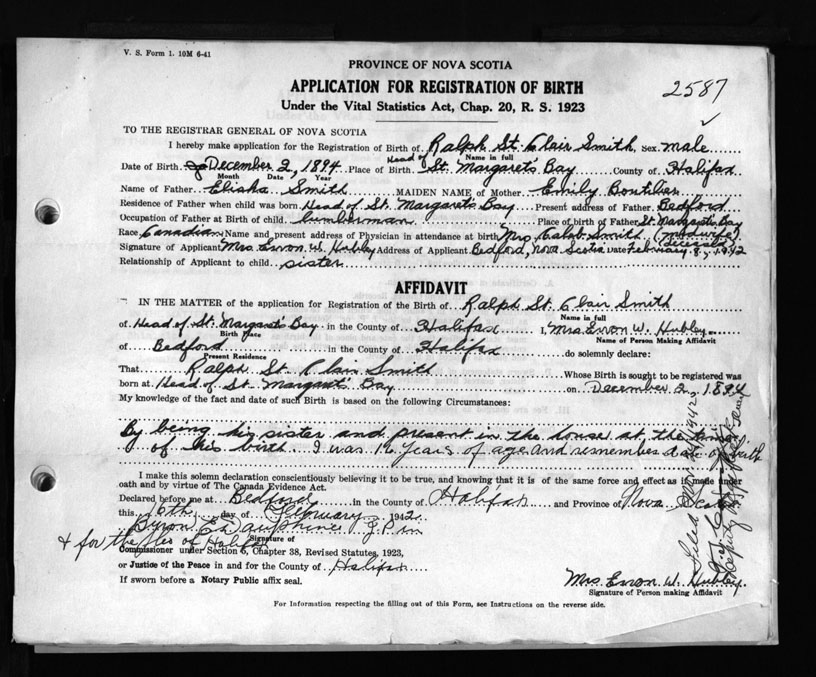 V. S. Form 1. 10M 6-41
PROVINCE OF NOVA SCOTIA
APPLICATION FOR REGISTRATION OF BIRTH
2587
Under the Vital Statistics Act, Chap. 20, R. S. 1923
TO THE REGISTRAR GENERAL OF NOVA SCOTIA
I hereby make application for the Registration of Birth of Ralph St. Clair Smith Sex male
Name in full
Date of Birth December 2, 1894 Place of Birth Head of St. Margaret's Bay County of Halifax
Month Date Year
Name of Father Elisha Smith MAIDEN NAME of Mother Emily Boutilier
Residence of Father when child was born Head of St. Margaret's Bay Present address of Father Bedford
Occupation of Father at Birth of child lumberman Place of birth of Father St. Margaret's Bay
Race Canadian Name and present address of Physician in attendance at birth Mrs Caleb Smith (midwife) (deceased)
Signature of Applicant Mrs. Erron W. Hubley Address of Applicant Bedford, Nova Scotia Date February 8, 1942
Relationship of Applicant to child sister
AFFIDAVIT
IN THE MATTER of the application for Registration of the Birth of Ralph St. Clair Smith
Name in full
of Head of St. Margaret's Bay in the County of Halifax I, Mrs. Erron W. Hubley
Birth Place Name of Person Making Affidavit
of Bedford in the County of Halifax do solemnly declare:
Present Residence
That Ralph St. Clair Smith Whose Birth is sought to be registered was
born at Head of St. Margaret's Bay on December 2, 1894
My knowledge of the fact and date of such Birth is based on the following Circumstances:
By being his sister and present in the house at the time
of his birth. I was 12 years of age and remember date of birth
I make this solemn declaration conscientiously believing it to be true, and knowing that it is of the same force and effect as if made under
oath and by virtue of The Canada Evidence Act.
Declared before me at Bedford in the County of Halifax and Province of Nova Scotia
this 6th day of February 1942
Byron Dauphinee J.P. in
& for the of Halifax
Signature of
Commissioner under Section 6, Chapter 38, Revised Statutes, 1923,
or Justice of the Peace in and for the County of Halifax
If sworn before a Notary Public affix seal.
Mrs. Erron W. Hubley
Signature of Person making Affidavit
For Information respecting the filling out of this Form, see Instructions on the reverse side.
Filed 1942
Deputy